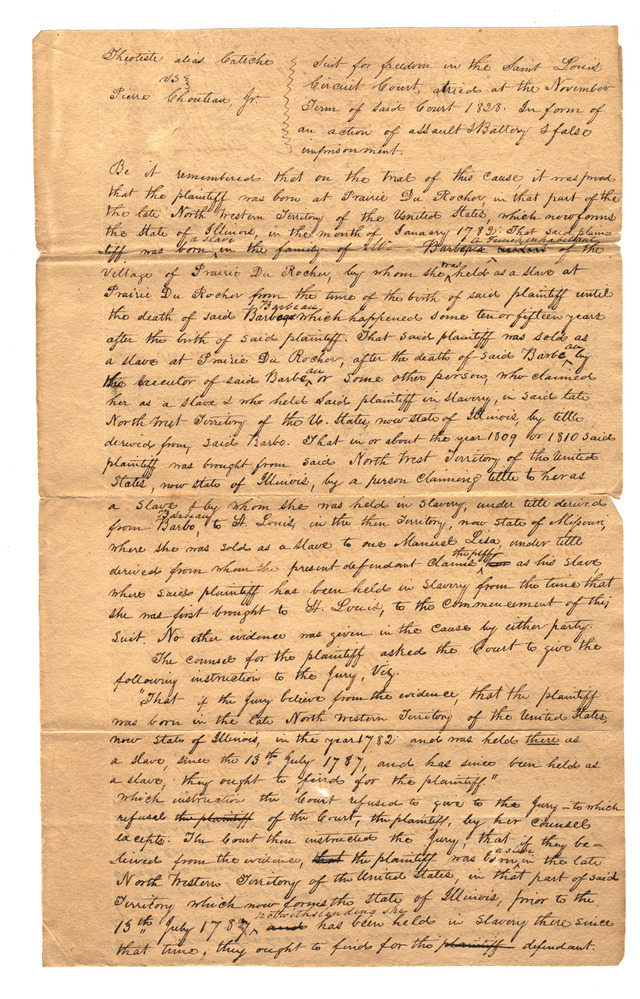 Theotiste alias Catiche
vs
Pierre Chouteau, Jr
Suit for freedom in the Saint Louis
Circuit Court, tried at the November
Term of said Court 1828. In form of
an action of assault & Battery & false
imprisonment.
Be it remembered that on the trial of this cause it was proved
that the plaintiff was born at Prairie Du Rocher, in that part of the
the late North Western Territory of the United States, which now forms
the State of Illinois, in the month of January 1782. That said plain-
tiff was born a slave in the family of Mr Barbeau a French inhabitant of the
Village of Prairie Du Rocher, by whom she was held as a slave at
Prairie Du Rocher from the time of the birth of said plaintiff until
the death of said Barbeau which happened some ten or fifteen years
after the birth of said plaintiff. That said plaintiff was sold as
a slave at Prairie Du Rocher, after the death of said Barbeau by
the executor of said Barbeau or some other person, who claimed
her as a slave & who held said plaintiff in slavery, in said late
North West Territory of the U. States, now state of Illinois, by title
derived from, said Barbo. That in or about the year 1809 or 1810 said
plaintiff was brought from said North West Territory of the United
States, now state of Illinois, by a person claiming title to her as
a slave & by whom she was held in slavery, under title derived
from Barbeau, to St. Louis, in the then Territory, now State of Missouri,
where she was sold as a slave to one Manuel Lisa, under title
derived from whom the present defendant claims the pltff as his slave,
where said plaintiff has been held in slavery from the time that
she was first brought to St. Louis, to the commencement of this
suit. No other evidence was given in the cause by either party.
The counsel for the plaintiff asked the Court to give the
following instruction to the Jury, Viz.
"That if the Jury believe from the evidence, that the plaintiff
was born in the late North Western Territory of the United States,
now State of Illinois, in the year 1782 and was held there as
a slave, since the 13th July 1787, and has since been held as
a slave, they ought to find for the plaintiff."
which instruction the Court refused to give to the Jury – to which
refusal the plaintiff of the Court, the plaintiff, by her counsel
excepts. The Court then instructed the Jury, that if they be-
lieved from the evidence, that the plaintiff was born a slave in the late
North Western Territory of the United States, in that part of said
Territory which now forms the State of Illinois, prior to the
13th July 1787, notwithstanding she and has been held in slavery there since
that time, they ought to find for the plaintiff defendant.